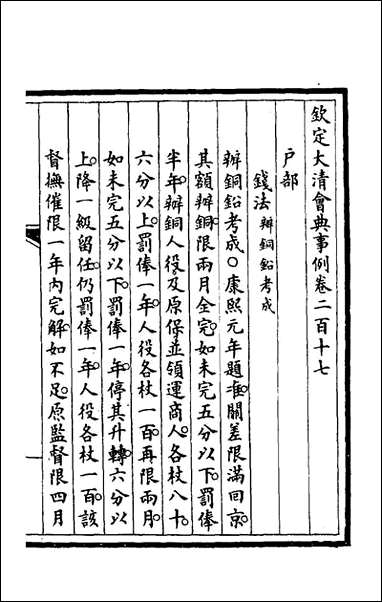 欽定大清會典事例卷二百十七
戶部
錢法辦銅鉛考成
辦銅鉛考成○康熙元年題准。關差限滿回京。
其額辦銅。限兩月全完。如未完五分以下。罰俸
半年。辦銅人役及原保並領運商人。各杖八十。
六分以上。罰俸一年。人役各杖一百。再限兩月。
如未完五分以下。罰俸一年。停其升轉。六分以
上。降一級留任。仍罰俸一年。人役各杖一百。該
督撫催限一年內完解。如不足。原監督限四月